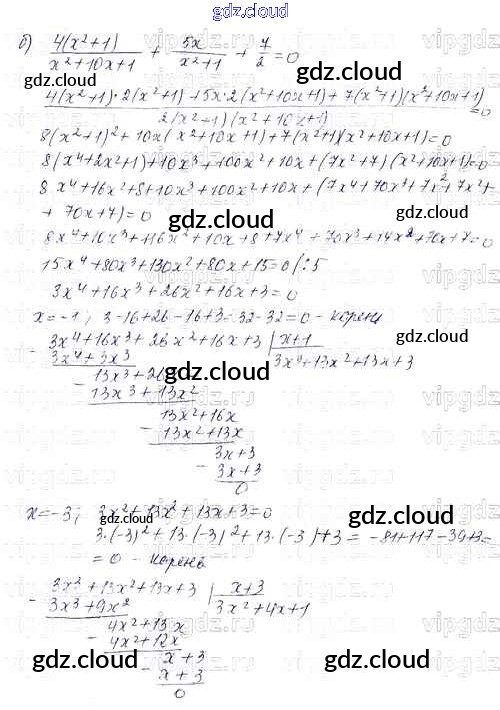 gdz.cloud
б) 4(x²+1)/(x²+10x+1) + 5x/(x²+1) + 7/2 = 0
(4(x²+1)·2(x²+1)+5x·2(x²+10x+1)+7(x²+1)(x²+10x+1))/(2(x²+1)(x²+10x+1)) = 0
8(x²+1)²+10x(x²+10x+1)+7(x²+1)(x²+10x+1)=0
8(x⁴+2x²+1)+10x³+100x²+10x+(7x²+7)(x²+10x+1)=0
8x⁴+16x²+8+10x³+100x²+10x+(7x⁴+70x³+7x²+7x²+
+70x+7)=0
8x⁴+10x³+116x²+10x+8+7x⁴+70x³+14x²+70x+7=0
15x⁴+80x³+130x²+80x+15=0 /:5
3x⁴+16x³+26x²+16x+3=0
x=-1; 3-16+26-16+3=32-32=0 - корень
- 3x⁴+16x³+26x²+16x+3 | x+1
3x⁴+3x³ 3x⁴+13x²+13x+3
13x³+26x²
- 13x³+13x²
13x²+16x
- 13x²+13x
3x+3
- 3x+3
0
x=-3; 3x²+13x²+13x+3=0
3·(-3)²+13·(-3)²+13·(-3)+3= -81+117-39+3=
=0 - корень
- 3x²+13x²+13x+3 | x+3
3x³+9x² 3x²+4x+1
4x²+13x
- 4x²+12x
x+3
- x+3
0
gdz.cloud